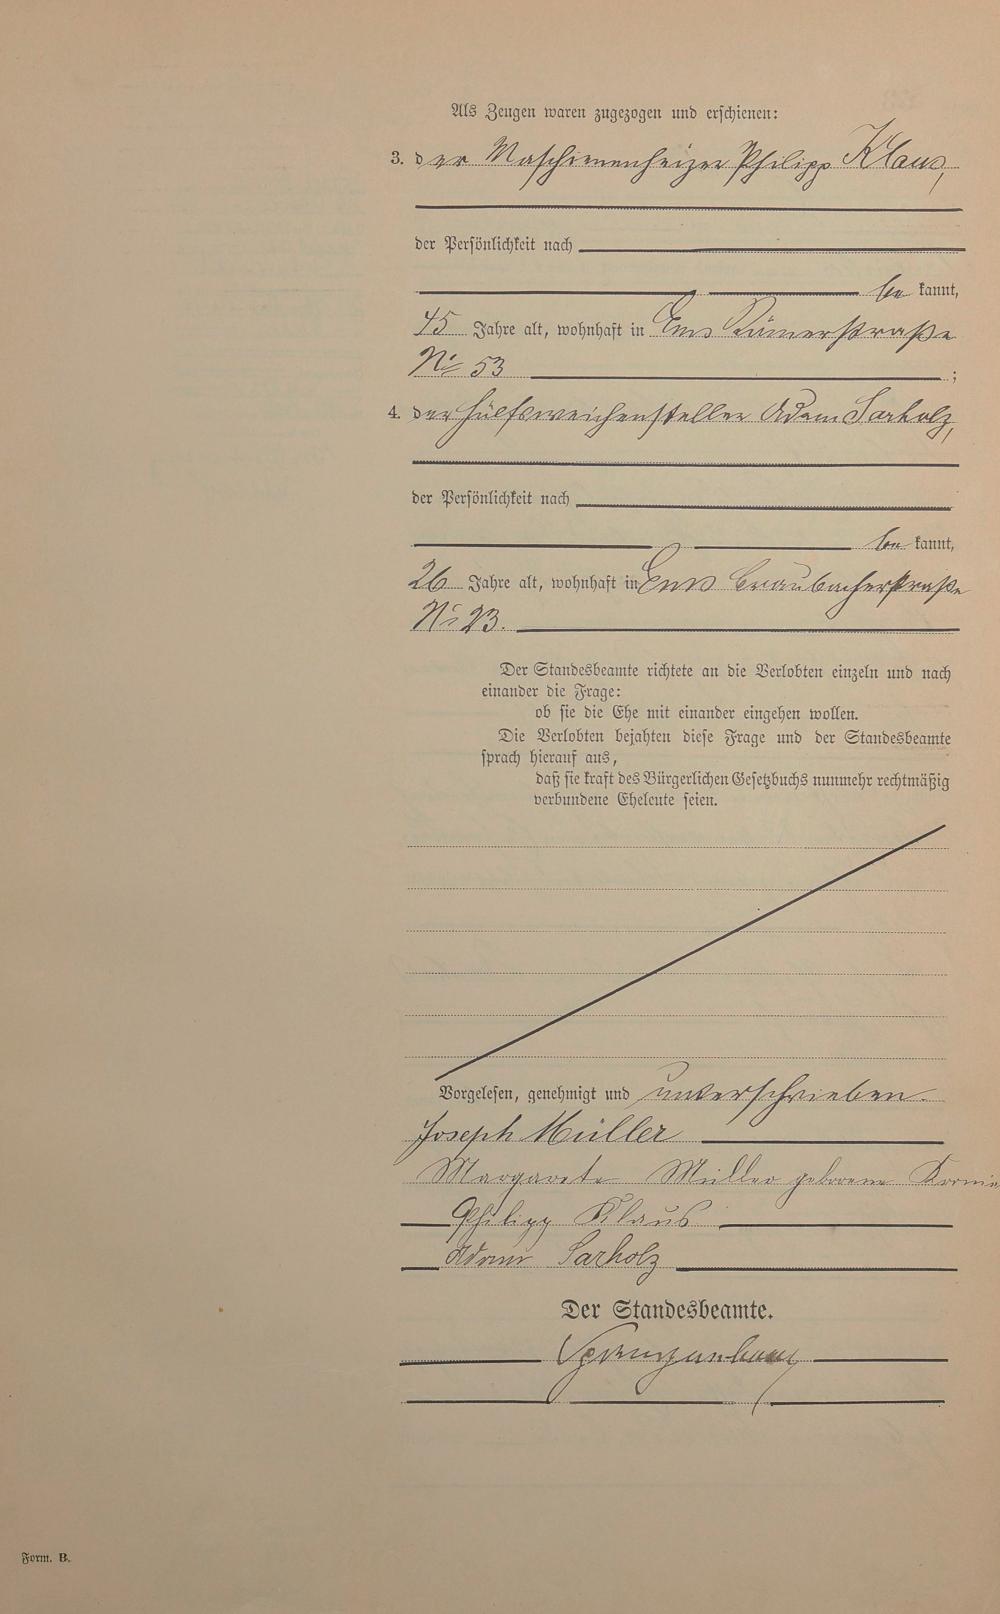 Als Zeugen waren zugezogen und erschienen:
3. der Maschienenheizer Philipp Klaus,
der Persönlichkeit nach
be kannt,
45 Jahre alt, wohnhaft in Ems Römerstraße
No 53 ;
4. der Hülfsweichensteller Adam Sarholz,
der Persönlichkeit nach
be kannt,
26 Jahre alt, wohnhaft in Ems Braubacherstraße
No 23.
Der Standesbeamte richtete an die Verlobten einzeln und nach
einander die Frage:
ob sie die Ehe mit einander eingehen wollen.
Die Verlobten bejahten diese Frage und der Standesbeamte
sprach hierauf aus,
daß sie kraft des Bürgerlichen Gesetzbuchs nunmehr rechtmäßig
verbundene Eheleute seien.
Vorgelesen, genehmigt und unterschrieben.
Joseph Müller
Margarete Müller geborene
Philipp Klaus
Adam Sarholz
Der Standesbeamte.
Form. B.